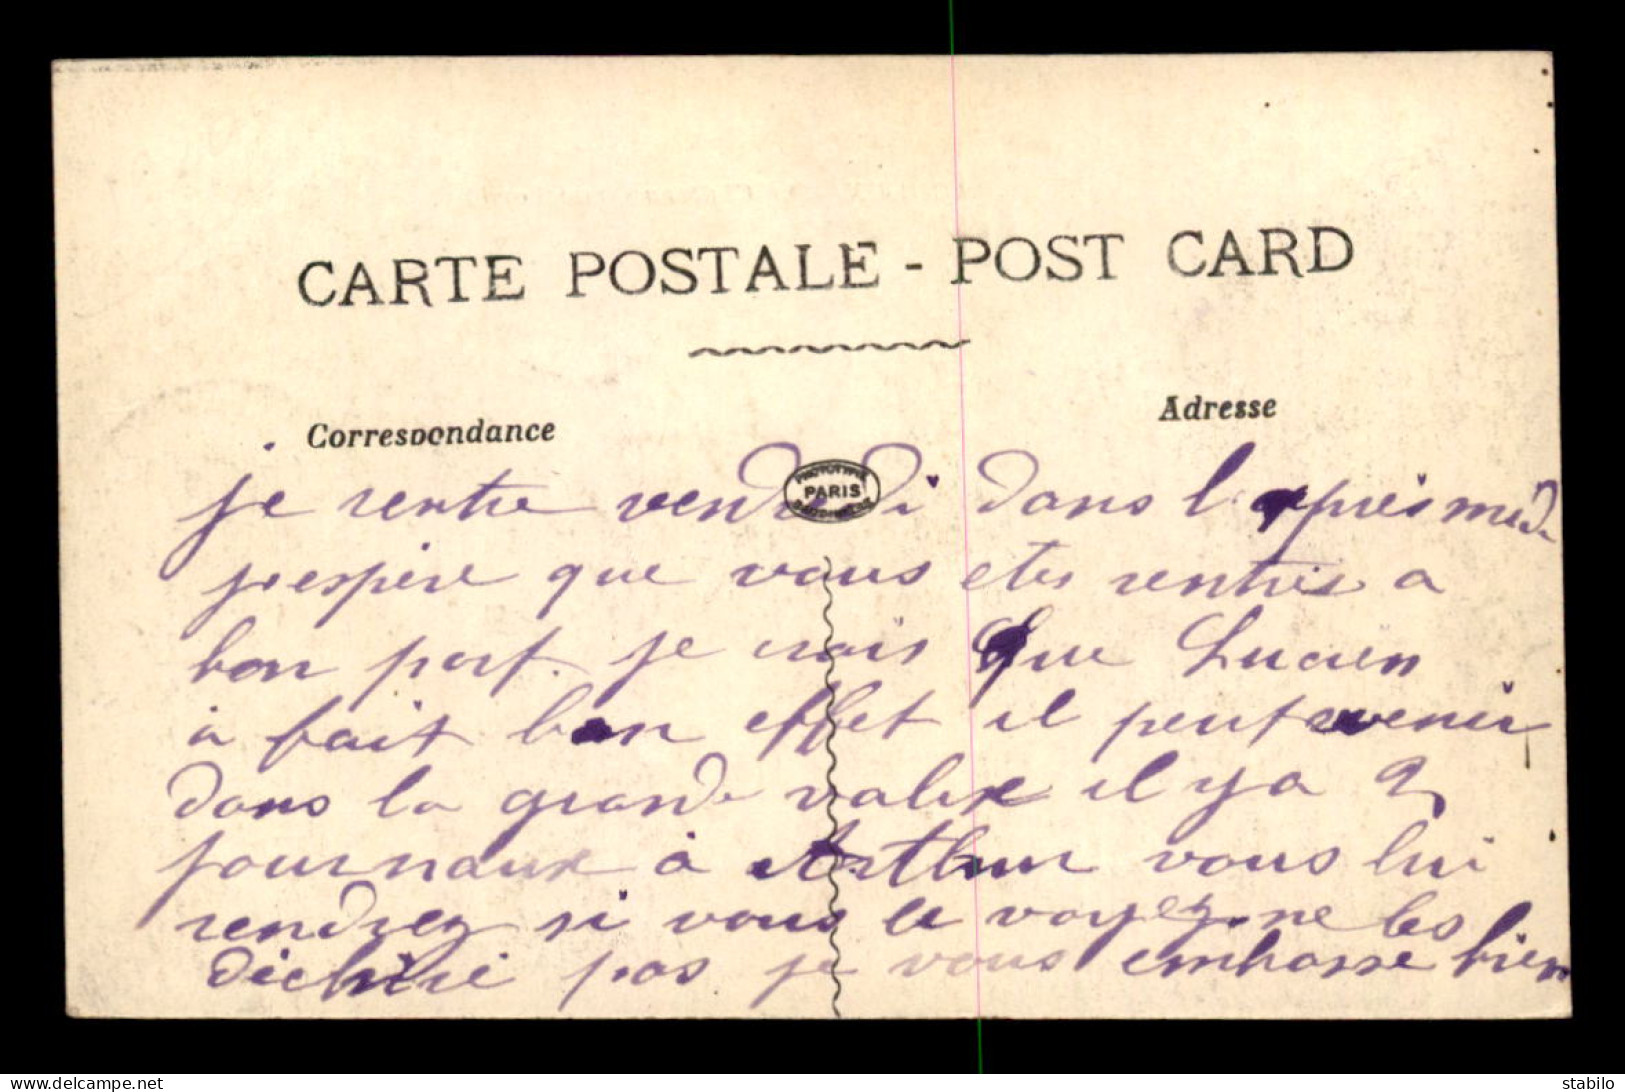 CARTE POSTALE - POST CARD
Correspondance
Adresse
PHOTOTYPIE
PARIS
je rentre vendredi dans l apres midi
j espère que vous etes rentrés a
bon port. je crois que Lucien
à fait bon effet il peut venir
dans la grande valise il y a 2
journaux à Arthur vous lui
rendrez si vous le voyez. ne les
dechiré pas je vous embrasse bien
delcampe.net
stabilo